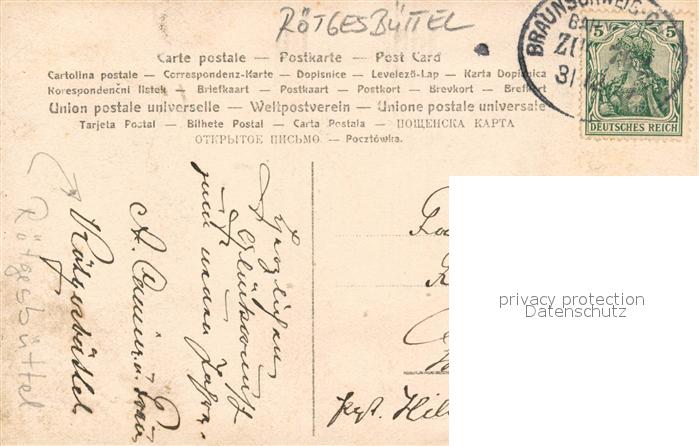 RÖTGESBÜTTEL
BRAUNSCHWEIG
BAH
ZU
31
5 5
DEUTSCHES REICH
Carte postale — Postkarte — Post Card
Cartolina postale — Correspondenz-Karte — Dopisnice — Levelező-Lap — Karta Dopisnica
Korespondenční lístek — Briefkaart — Postkaart — Postkort — Brevkort — Brefkort
Union postale universelle — Weltpostverein — Unione postale universale
Tarjeta Postal — Bilhete Postal — Carta Postala — ПОЩЕНСКА КАРТА
ОТКРЫТОЕ ПИСЬМО — Pocztówka.
Herzlichen
Glückwunsch
zum neuen Jahre.
A.
Rötgesbüttel
Rötgesbüttel
privacy protection
Datenschutz